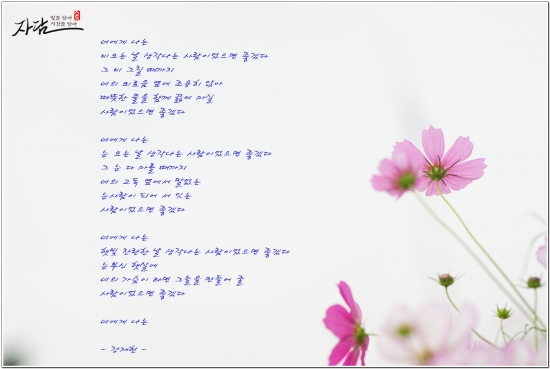 자담
빛을 담아
시간을 담아
너에게 나는
비오는 날 생각나는 사람이었으면 좋겠다
그 비 그칠 때까지
너의 외로움 옆에 조용히 앉아
따뜻한 물을 함께 끓여 마실
사람이었으면 좋겠다
너에게 나는
눈 오는 날 생각나는 사람이었으면 좋겠다
그 눈 다 마를 때까지
너의 고독 옆에서 말없는
눈사람이 되어 서 있는
사람이었으면 좋겠다
너에게 나는
햇빛 찬란한 날 생각나는 사람이었으면 좋겠다
눈부신 햇살에
너의 가슴이 타면 그늘을 만들어 줄
사람이었으면 좋겠다
너에게 나는
- 강재현 -